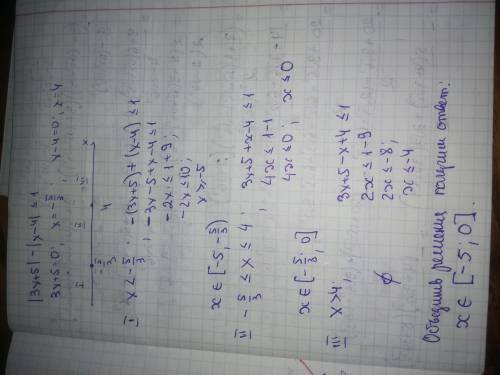 |3x+5| - |x-4| ≤ 1
3x+5=0; x = -5/3; x-4=0; x=4
I II III
-5/3 4 x
I) x < -5/3; -(3x+5)+(x-4) ≤ 1
-3x-5+x-4 ≤ 1
-2x ≤ 1+9;
-2x ≤ 10;
x ≥ -5
x ∈ [-5, -5/3)
II -5/3 ≤ x ≤ 4; 3x+5+x-4 ≤ 1
4x ≤ 1-1
4x ≤ 0; x ≤ 0
x ∈ [-5/3; 0]
III x>4; 3x+5-x+4 ≤ 1
2x ≤ 1-9
2x ≤ -8;
∅ x ≤ -4
Объединив решения получим ответ:
x ∈ [-5; 0].